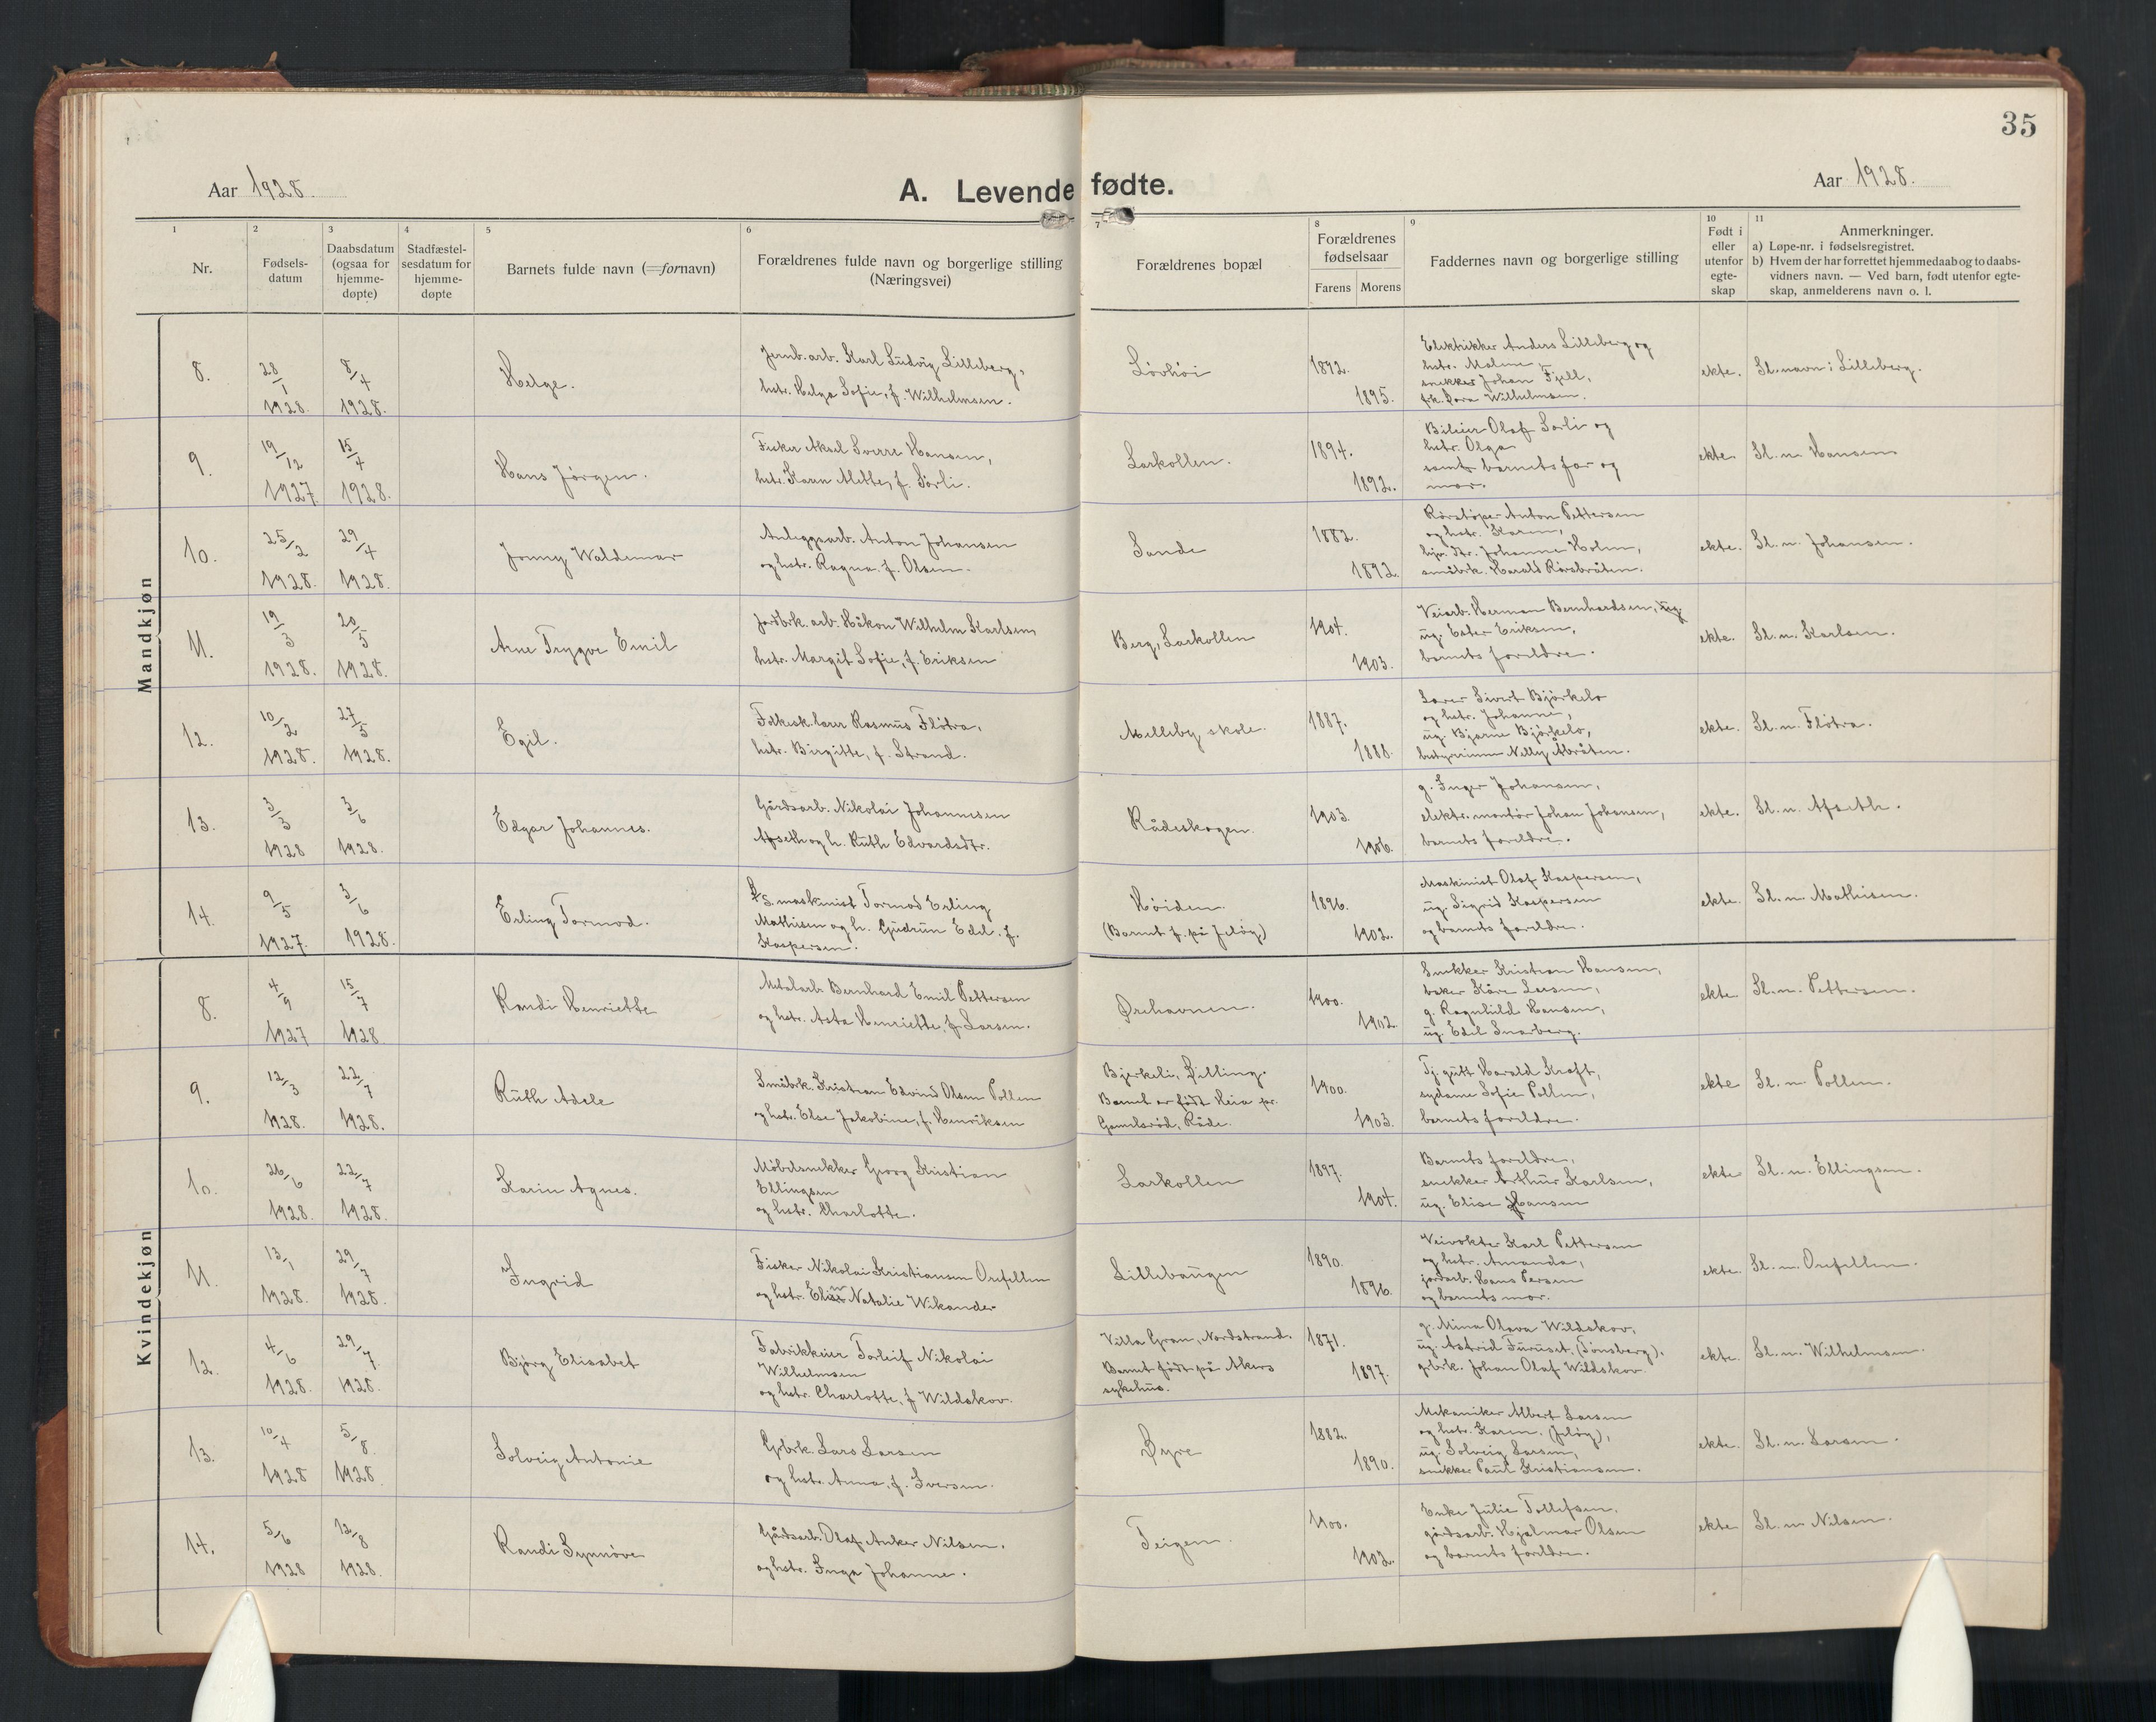 35
Aar 1928.
A. Levende fødte.
Aar 1928.
1 2 3 4 5 6 7 8 9 10 11
Nr.
Fødsels-
datum
Daabsdatum
(ogsaa for
hjemme-
døpte)
Stadfæstel-
sesdatum for
hjemme-
døpte
Barnets fulde navn (=fornavn)
Forældrenes fulde navn og borgerlige stilling
(Næringsvei)
Forældrenes bopæl
Forældrenes
fødselsaar
Farens Morens
Faddernes navn og borgerlige stilling
Født i
eller
utenfor
egte-
skap
Anmerkninger.
a) Løpe-nr. i fødselsregistret.
b) Hvem der har forrettet hjemmedaab og to daabs-
vidners navn. — Ved barn, født utenfor egte-
skap, anmelderens navn o. l.
Mandkjøn
8.
28/1
1928.
8/4
1928.
Helge.
Jernb. arb. Karl Ludvig Lilleberg,
hstr. Helga Sofie, f. Wilhelmsen.
Løvhøi
1892.
1895.
Elektrikker Anders Lilleberg og
hstr. Malene,
snekker Johan Fjell,
frk. Dora Wilhelmsen.
ekte.
Sl.navn: Lilleberg.
9.
19/12
1927.
15/4
1928.
Hans Jørgen.
Fisker Aksel Sverre Hansen,
hstr. Karen Mette, f. Sørli.
Larkollen.
1894.
1892.
Bileier Olaf Sørli og
hstr. Olga
samt barnets far og
mor.
ekte
Sl. n. Hansen
10.
25/2
1928.
29/4
1928.
Jonny Waldemar
Anleggsarb. Anton Johansen
og hstr. Ragna f. Olsen.
Sande
1882.
1892.
Rørstøper Anton Pettersen
og hstr. Karen,
hjv. dtr. Johanne Holm,
småbrk. Harald Rørsbråten.
ekte.
Sl. n. Johansen.
11.
19/3
1928.
20/5
1928.
Arne Trygve Emil
Jordbrk. arb. Håkon Wilhelm Karlsen,
hstr. Margit Sofie, f. Eriksen
Berg, Larkollen
1904.
1903.
Veiarb. Herman Bernhardsen, ug.
ug. Ester Eriksen,
barnets foreldre.
ekte.
Sl. n. Karlsen.
12.
10/2
1928.
27/5
1928.
Egil.
Folkesk. lærer Rasmus Fløtra,
hstr. Birgitte, f. Strand.
Melleby skole.
1887.
1888.
Lærer Sivert Bjørkelo
og hstr. Johanne,
ug. Bjarne Bjørkelo,
bestyrerinne Nelly Åbråten.
ekte.
Sl. n. Fløtra.
13.
3/3
1928
3/6
1928.
Edgar Johannes.
Gårdsarb. Nikolai Johannesen
Afseth og h. Ruth Edvardsdtr.
Rådeskogen.
1903.
1906.
g. Inger Johansen,
elektr. montør Johan Johansen,
barnets foreldre.
ekte.
Sl. n. Afseth.
14.
9/5
1927.
3/6
1928.
Erling Tormod.
D/S. maskinist Tormod Erling
Mathisen og h. Gudrun Edel. f.
Kaspersen.
Høiden.
(Barnet f. på Jeløy)
1896.
1902.
Maskinist Olaf Kaspersen,
ug. Sigrid Kaspersen
og barnets foreldre.
ekte.
Sl. n. Mathisen.
Kvindekjøn
8.
4/9
1927
15/7
1928
Randi Henriette
Metalarb. Bernhard Emil Pettersen
og hstr. Asta Henriette, f. Larsen.
Ørehavnen.
1900.
1902.
Snekker Kristian Hansen,
baker Kåre Larsen,
g. Ragnhild Hansen,
ug. Edel Snarberg.
ekte
Sl. n. Pettersen.
9.
12/3
1928.
22/7
1928.
Ruth Adele
Småbrk. Kristian Edvind Olsen Pollen
og hstr. Else Jakobine, f. Henriksen
Bjerkeli, Dilling.
Barnet er født Heia pr.
Gunelsrød, Råde.
1900.
1903.
Tj. gutt Harald Kroft,
sydame Sofie Pollen,
barnets foreldre.
ekte
Sl. n. Pollen.
10.
26/6
1928.
22/7
1928.
Karin Agnes.
Møbelsnekker Georg Kristian
Ellingsen
og hstr. Charlotte.
Larkollen
1897.
1904.
Barnets foreldre,
snekker Arthur Karlsen,
ug. Elise Hansen
ekte
Sl. n. Ellingsen.
11.
13/1
1928.
29/7
1928.
Ingrid
Fisker Nikolai Kristiansen Orefellen
og hstr. Natalie Wikander
Lillebaugen
1890.
1896.
Veivokter Karl Pettersen
og hstr. Amanda,
jordarb. Hans Persen
og barnets mor.
ekte.
Sl. n. Orefellen.
12.
4/6
1928.
29/7.
1928.
Bjørg Elisabet
Fabrikkeier Torleif Nikolai
Wilhelmsen
og hstr. Charlotte, f Wildskov.
Villa Gran, Nordstrand.
Barnet født på Akers
sykehus.
1871.
1897.
g. Mina Olava Wildskov,
ug. Astrid Furuset, (Tønsberg),
grbrk. Johan Olaf Wildskov
ekte.
Sl. n. Wilhelmsen.
13.
10/4
1928
5/8.
1928.
Solveig Antonie
Grbrk. Lars Larsen
og hstr. Anna, f. Iversen.
Øyre
1882.
1890.
Mekaniker Albert Larsen
og hstr. Karen. (Jeløy),
ug. Solveig Larsen,
snekker Paul Kristiansen.
ekte.
Sl. n. Larsen.
14.
5/6
1928
12/8
1928.
Randi Synnøve
Gårdsarb. Olaf Anker Nilsen,
og hstr. Inga Johanne.
Teigen.
1900.
1902.
Enke Julie Tollefsen,
gårdsarb. Hjalmar Olsen
og barnets foreldre.
ekte
Sl. n. Nilsen.